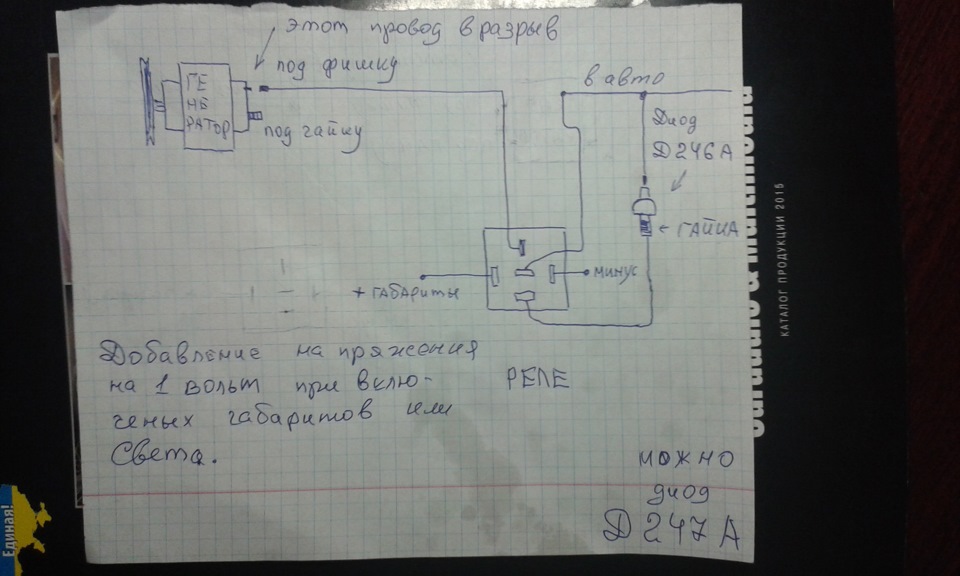 этот провод в разрыв
под фишку
в авто
ГЕ
НЕ
РАТОР
под гайку
Диод
Д246А
← ГАЙКА
+ ГАБАРИТЫ
МИНУС
Добавление на пряжения
на 1 вольт при вклю-
ченых габаритов или
Света.
РЕЛЕ
можно
диод
Д247А
КАТАЛОГ ПРОДУКЦИИ 2015
Единая!